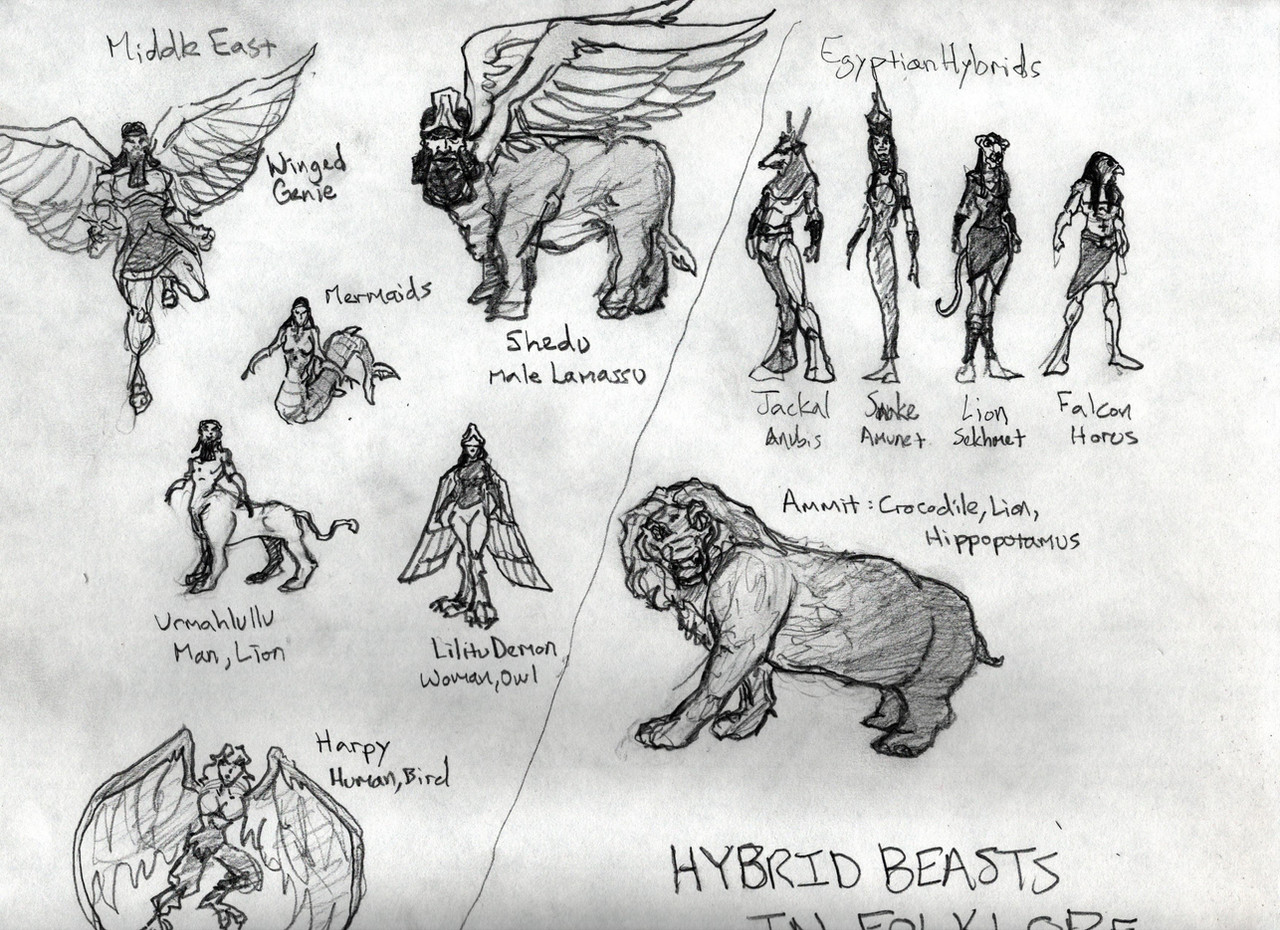 Middle East
Winged
Genie
Mermaids
Shedu
Male Lamassu
Urmahlullu
Man, Lion
Lilitu Demon
Woman, Owl
Harpy
Human, Bird
Egyptian Hybrids
Jackal
Anubis
Snake
Amunet
Lion
Sekhmet
Falcon
Horus
Ammit: Crocodile, Lion,
Hippopotamus
HYBRID BEASTS
IN FOLKLORE